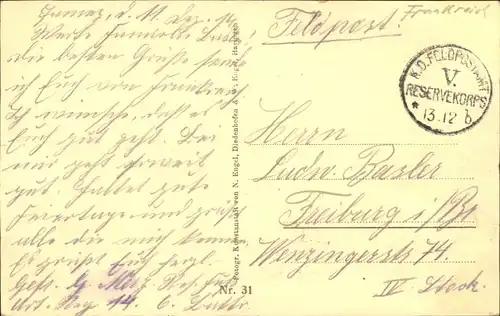 d. 11. Dez. 14
die besten Grüße sende
ich Euch von Frankreich
Ich wünsche, daß es
Euch gut geht. Bei
mir geht soweit
gut. Haltet gute
Feiertage und grüßt
alle die mich kennen
Es grüßt Euch herzl.
Gefr. G. Metz Res. Feld
Art. Reg 14. 6. Battr.
Photogr. Kunstanstalt von N. Engel, Diedenhofen
Nr. 31
Feldpost
Frankreich
K.D. FELDPOSTAMT
V.
RESERVEKORPS
* 13.12 b.
Herrn
Ludw. Basler
Freiburg i/Br
Wenzingerstr 74.
IV. Stock.